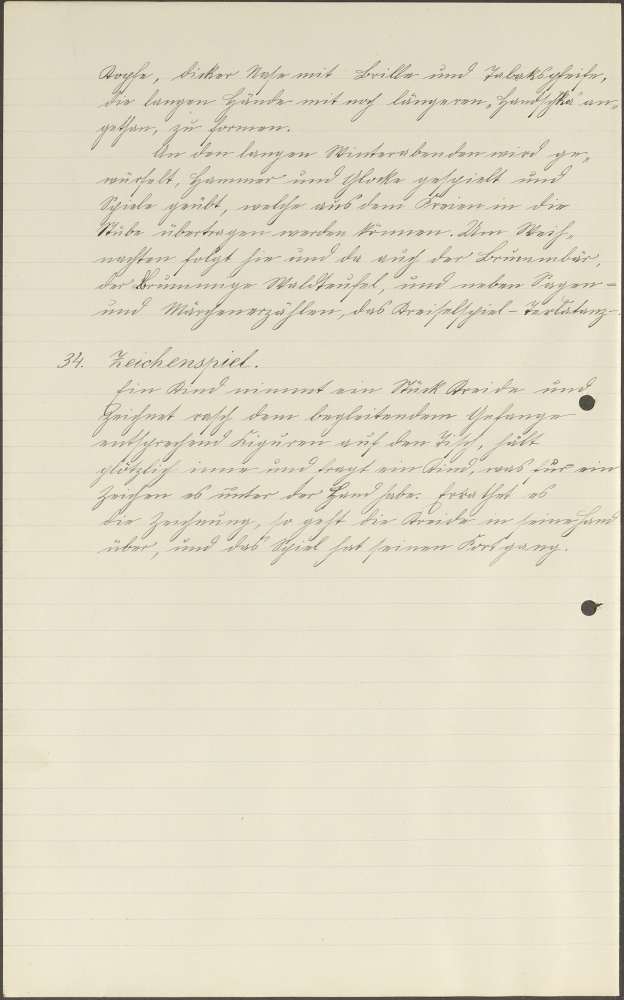 Kopfe, dicker Nase mit Brille und Tabakspfeife,
die langen Hände mit noch längeren „Handschkä“ an-
gethan, zu formen.
An den langen Winterabenden wird ge-
würfelt, Hammer und Glocke gespielt und
Spiele geübt, welche aus dem Freien in die
Stube übertragen werden können. Um Weih-
nachten folgt hie und da auch der Brummbär,
der Waldteufel, und neben Sagen-
und Märchenerzählen, das Kreiselspiel-
34. Zeichenspiel.
Ein Kind nimmt ein Stück Kreide und
zeichnet rasch dem begleitendem Gesange
entsprechend Figuren auf den Tisch, hält
plötzlich inne und fragt ein Kind, was für ein
Zeichen es unter der Hand habe. Errathet es
die Zeichnung, so geht die Kreide in seine Hand
über, und das Spiel hat seinen Fortgang.